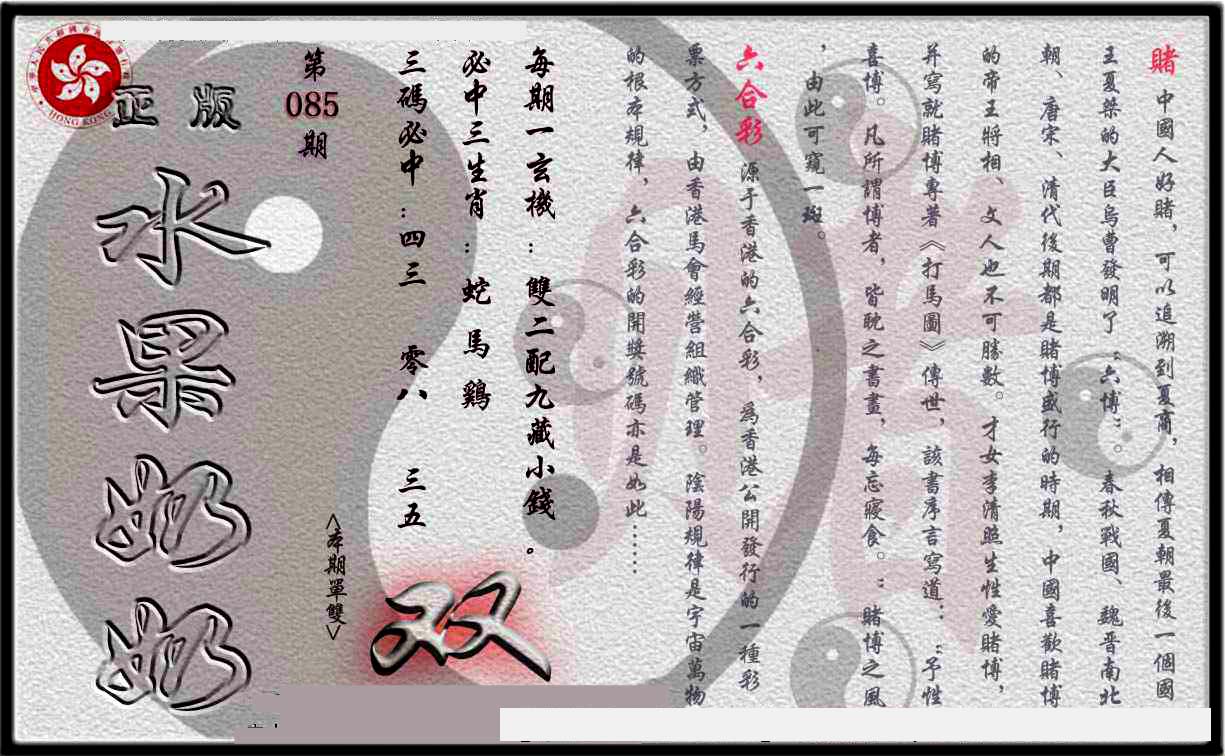 賭 中國人好賭，可以追溯到夏商，相傳夏朝最後一個國
王夏桀的大臣烏曹發明了“六博”。春秋戰國、魏晋南北
朝、唐宋、清代後期都是賭博盛行的時期，中國喜歡賭博
的帝王將相、文人也不可勝數。才女李清照生性愛賭博，
并寫就賭博專著《打馬圖》傳世，該書序言寫道：“予性
喜博。凡所謂博者，皆耽之書畫，每忘寢食。：賭博之風
，由此可窺一斑。
六合彩 源于香港的六合彩，爲香港公開發行的一種彩
票方式，由香港馬會經營組織管理。陰陽規律是宇宙萬物
的根本規律，六合彩的開獎號碼亦是如此……
每期一玄機：雙二配九藏小錢。
必中三生肖：蛇 馬 鷄
三碼必中：四三 零八 三五
<本期單雙>
双
第
085
期
正版
水果奶奶
HONG KONG